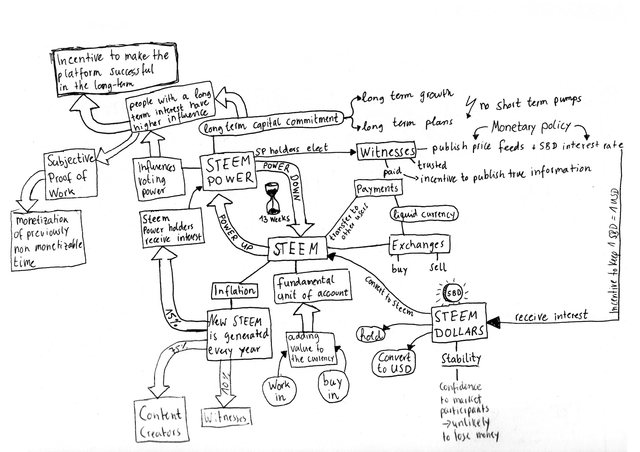 Incentive to make the
platform successful
in the long-term
people with a long
term interest have
higher influence
long term capital commitment
long term growth
long term plans
no short term pumps
Monetary policy
SP holders elect
Witnesses
publish price feeds + SBD interest rate
trusted
paid
incentive to publish true information
Subjective
Proof of
Work
Influences
voting
power
STEEM
POWER
POWER DOWN
13 weeks
Payments
liquid currency
transfer to
other users
monetization
of previously
non monetizable
time
Steem
Power holders
receive interest
POWER UP
STEEM
Exchanges
buy
sell
Incentive to keep 1 SBD = 1 USD
Inflation
fundamental
unit of account
convert to steem
SBD
STEEM
DOLLARS
receive interest
15%
New STEEM
is generated
every year
adding
value to
the currency
hold
Convert
to USD
Stability
75%
10%
Work
in
buy
in
Confidence
to market
participants
→ unlikely
to lose money
Content
Creators
Witnesses